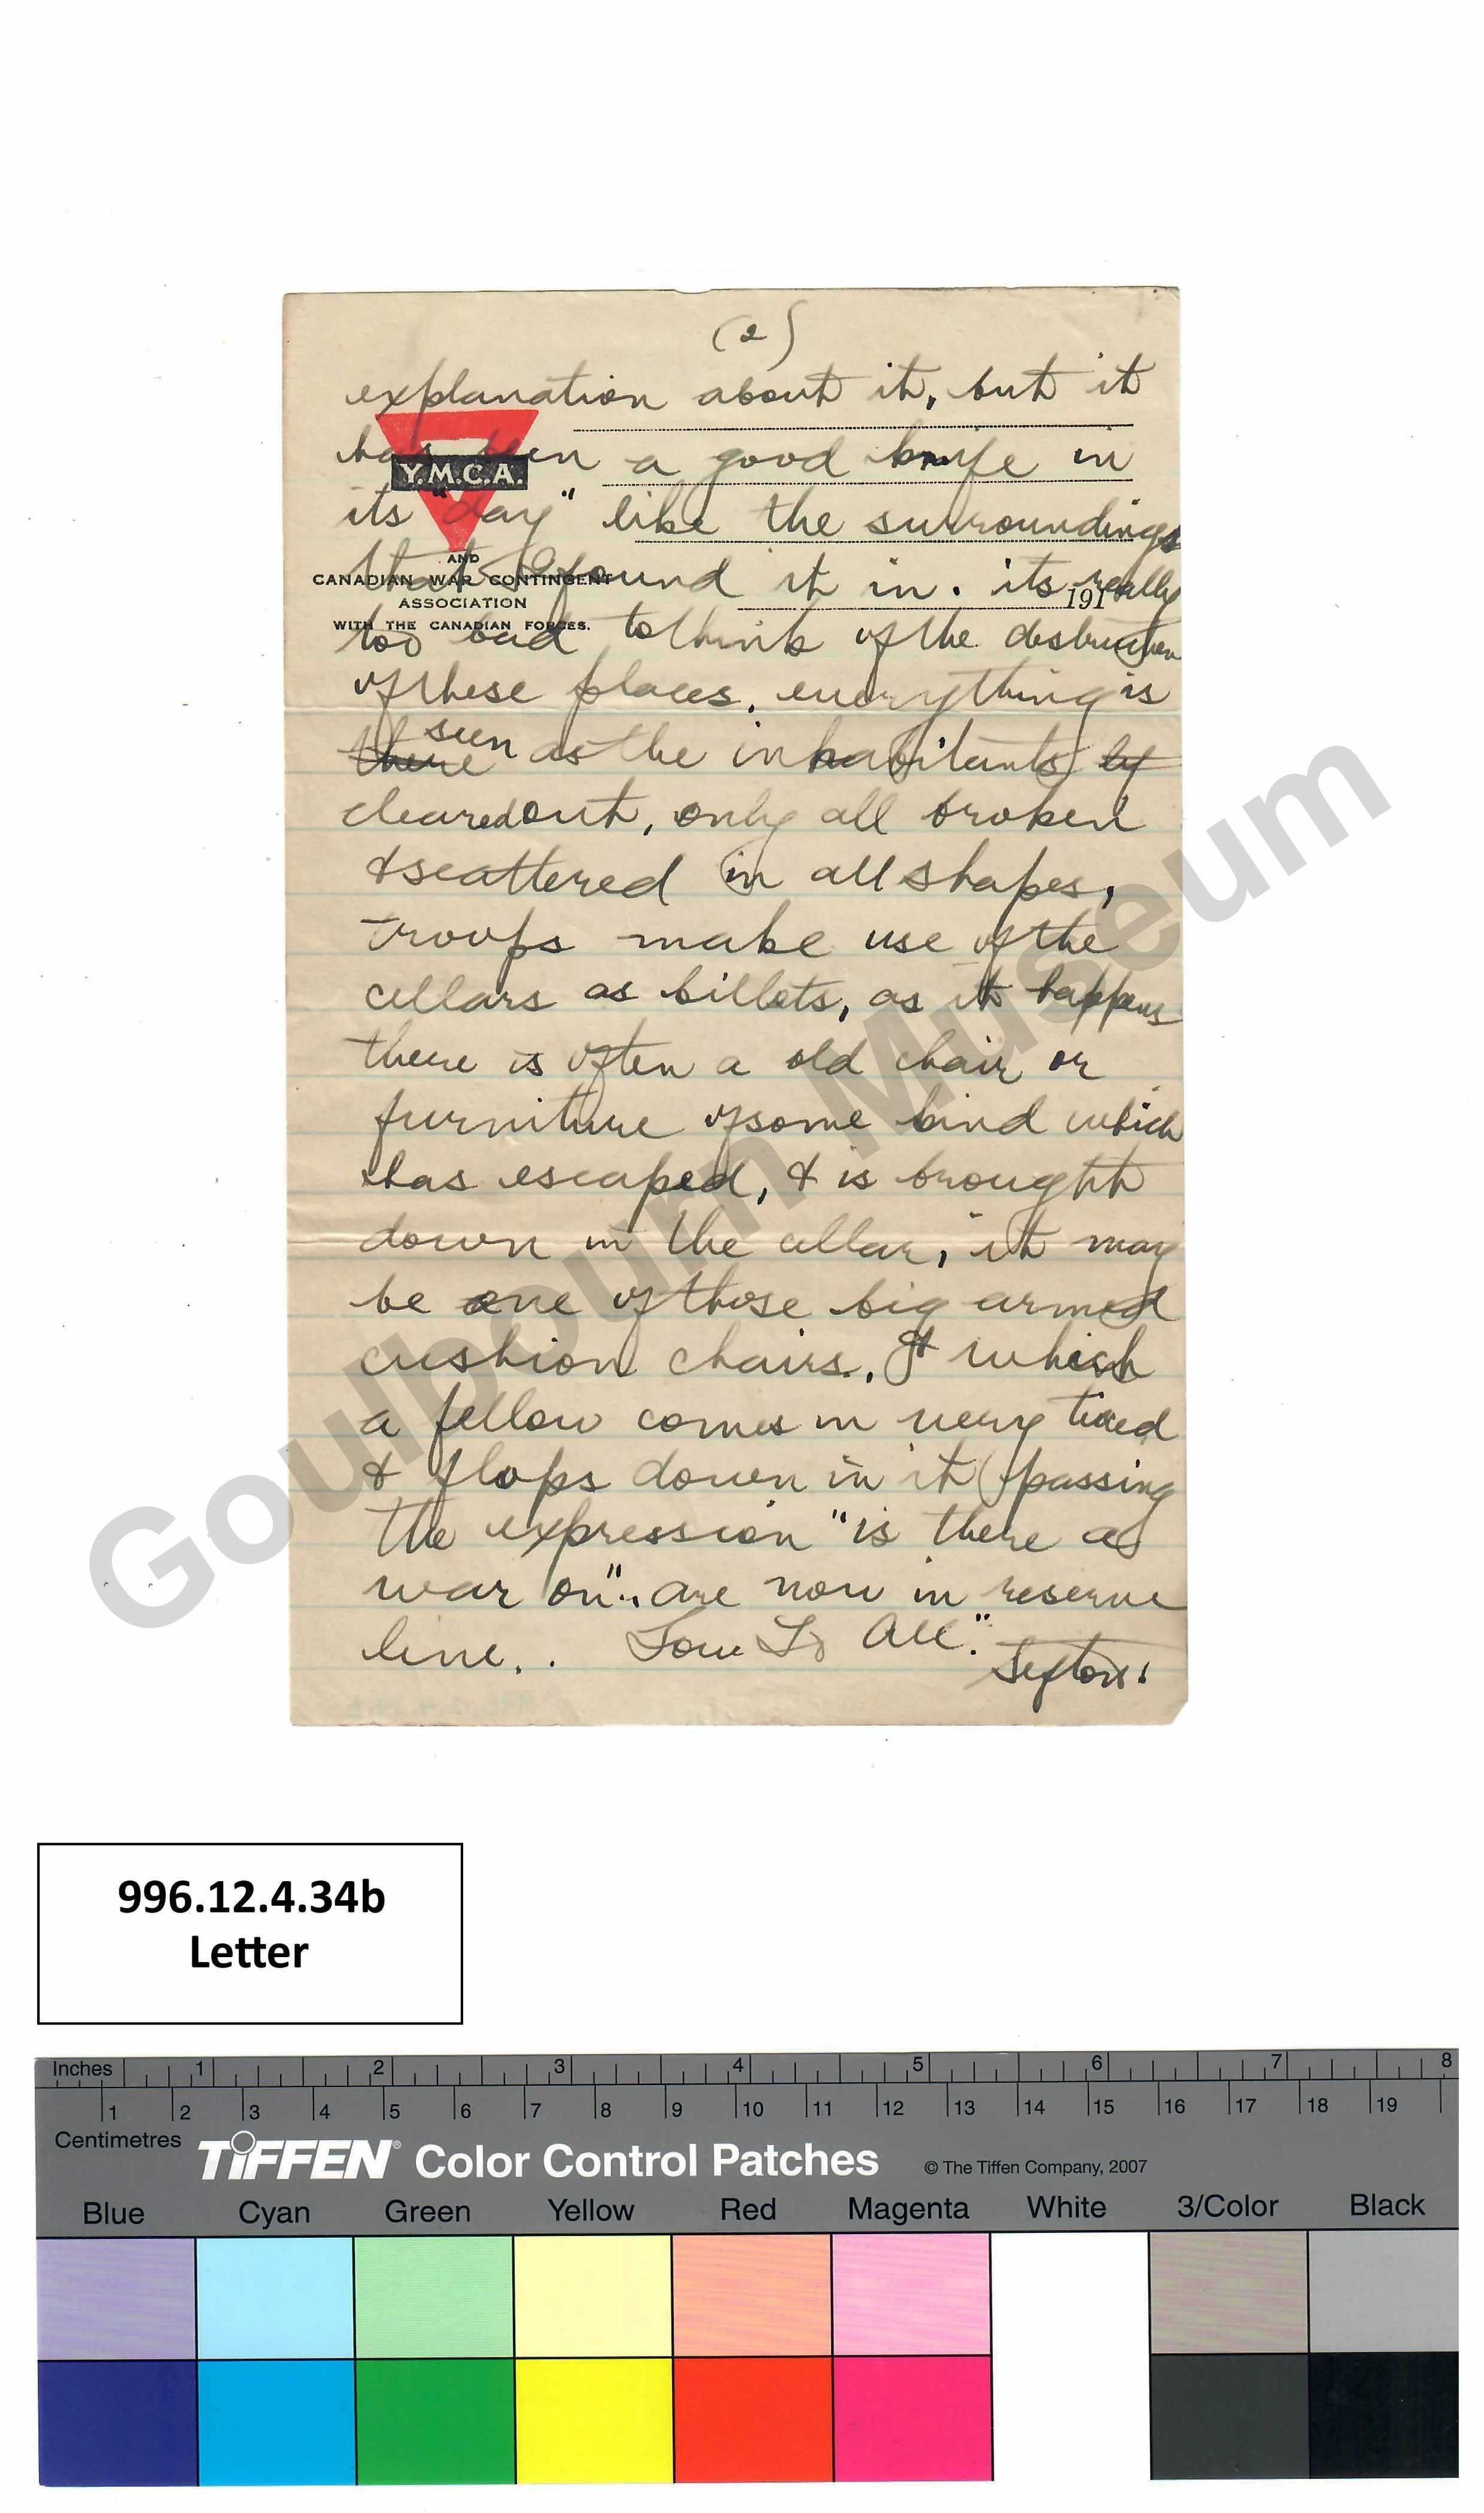 (2)
explanation about it, but it
has been a good knife in
its "day" like the surroundings
that I found it in. its really
too bad to think of the destruction
of these places. everything is
there seen as the inhabitants
cleared out, only all broken
& scattered in all shapes,
troops make use of the
cellars as billets, as it happens
there is often a old chair or
furniture of some kind which
has escaped, & is brought
down in the cellar, it may
be one of those big armed
cushion chairs. & which
a fellow comes in very tired
& flops down in it passing
the expression "is there a
war on". are now in reserve
line.. Love To All."
Sefton.
Y.M.C.A.
AND
CANADIAN WAR CONTINGENT
ASSOCIATION
WITH THE CANADIAN FORCES.
191
Goulbourn Museum
996.12.4.34b
Letter
Inches 1 2 3 4 5 6 7 8
1 2 3 4 5 6 7 8 9 10 11 12 13 14 15 16 17 18 19
Centimetres
TIFFEN® Color Control Patches © The Tiffen Company, 2007
Blue Cyan Green Yellow Red Magenta White 3/Color Black